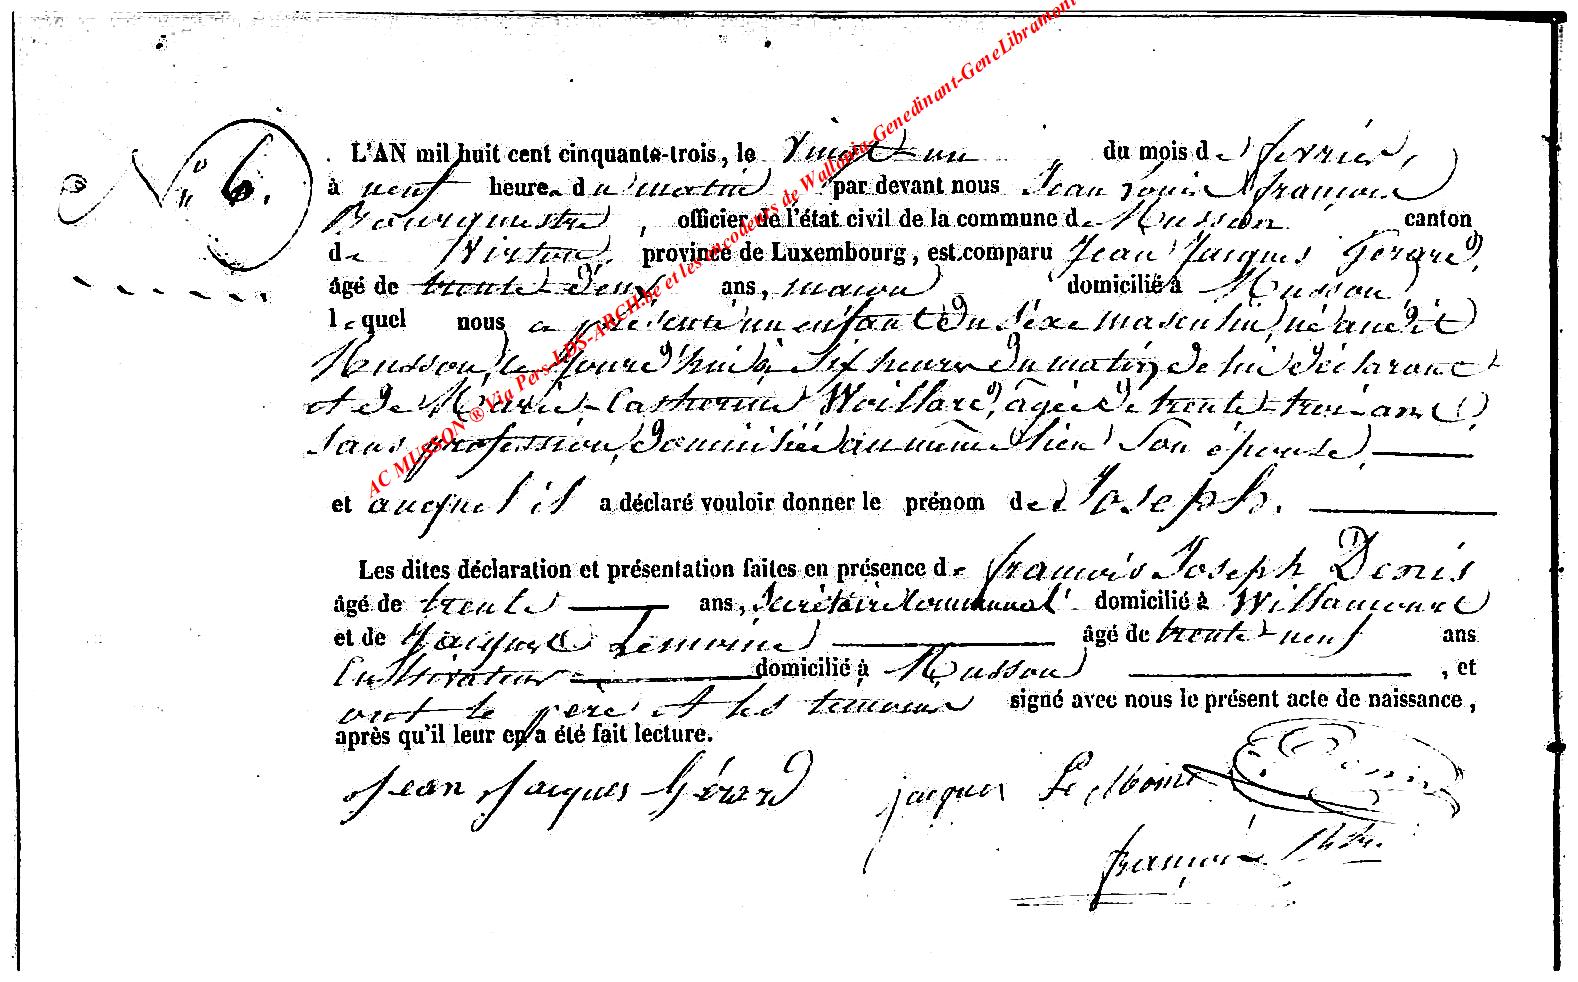 N° 6.
L'AN mil huit cent cinquante-trois, le vingt-un du mois de février,
à neuf heures du matin par devant nous Jean Louis François
Bourgmestre, officier de l'état civil de la commune de Musson canton
de Virton, province de Luxembourg, est comparu Jean Jacques Gérard,
âgé de trente-deux ans, maçon domicilié à Musson
lequel nous a présenté un enfant du sexe masculin, né audit
Musson, le jourd'hui à six heures du matin, de lui déclarant
et de Marie-Catherine Woillard, âgée de trente-trois ans,
sans profession, domiciliée au même lieu son épouse,
et auquel il a déclaré vouloir donner le prénom de Joseph.
Les dites déclaration et présentation faites en présence de François Joseph Denis
âgé de trente ans, secrétaire communal domicilié à Willancourt
et de Jacques Lemoine âgé de trente-neuf ans
Cultivateur domicilié à Musson, et
ont le père et les témoins signé avec nous le présent acte de naissance,
après qu'il leur en a été fait lecture.
Jean Jacques Gérard jacques Le Moine Denis
françois
AC MUSSON ® Via Pers-LDS-ARCH.be et les encodeurs de Wallonia-Genedinant-GeneLibramont